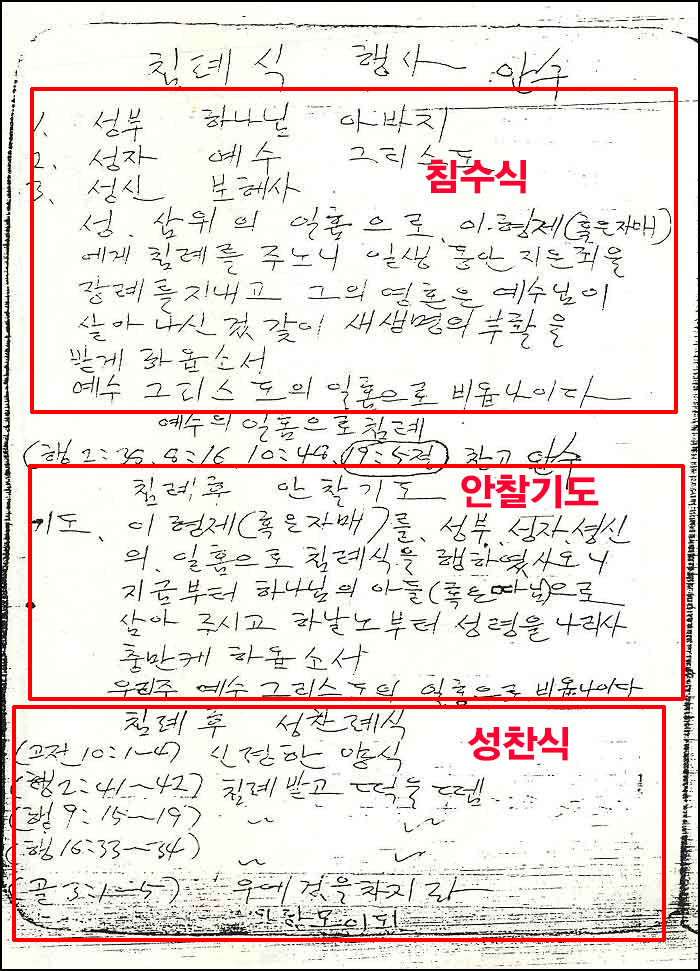 침례식 행사 안수
1. 성부 하나님 아바지
2. 성자 예수 그리스도
침수식
3. 성신 보혜사
성. 삼위의 일홈으로, 이.형제(혹은자매)
에게 침례를 주노니 일생 동안 지은죄을
장례를지내고 그의영혼은 예수님이
살아 나신것 같이 새생명의 부활을
받게 하옵소서
예수 그리스도의 일홈으로 비옵나이다
예수의 일홈으로 침례
(행2:38, 8:16, 10:48, 19:5절) 참고 안수
침례후 안찰기도
안찰기도
기도, 이 형제(혹은자매)를, 성부, 성자, 성신
의, 일홈으로 침례식을 행하엿사오니
지금부터 하나님의 아들(혹은 따님)으로
삼아 주시고 하날노부터 성령을 나리사
충만케 하옵소서
우리주 예수 그리스도의 일홈으로 비옵나이다
침례후 성찬례식
성찬식
(고전10:1~4) 신령한 양식
(행2:41~42) 침례받고 떡을 뗌
(행9:15~19) 〃 〃
(행16:33~34) 〃 〃
(골3:1~5) 우에것을차지라